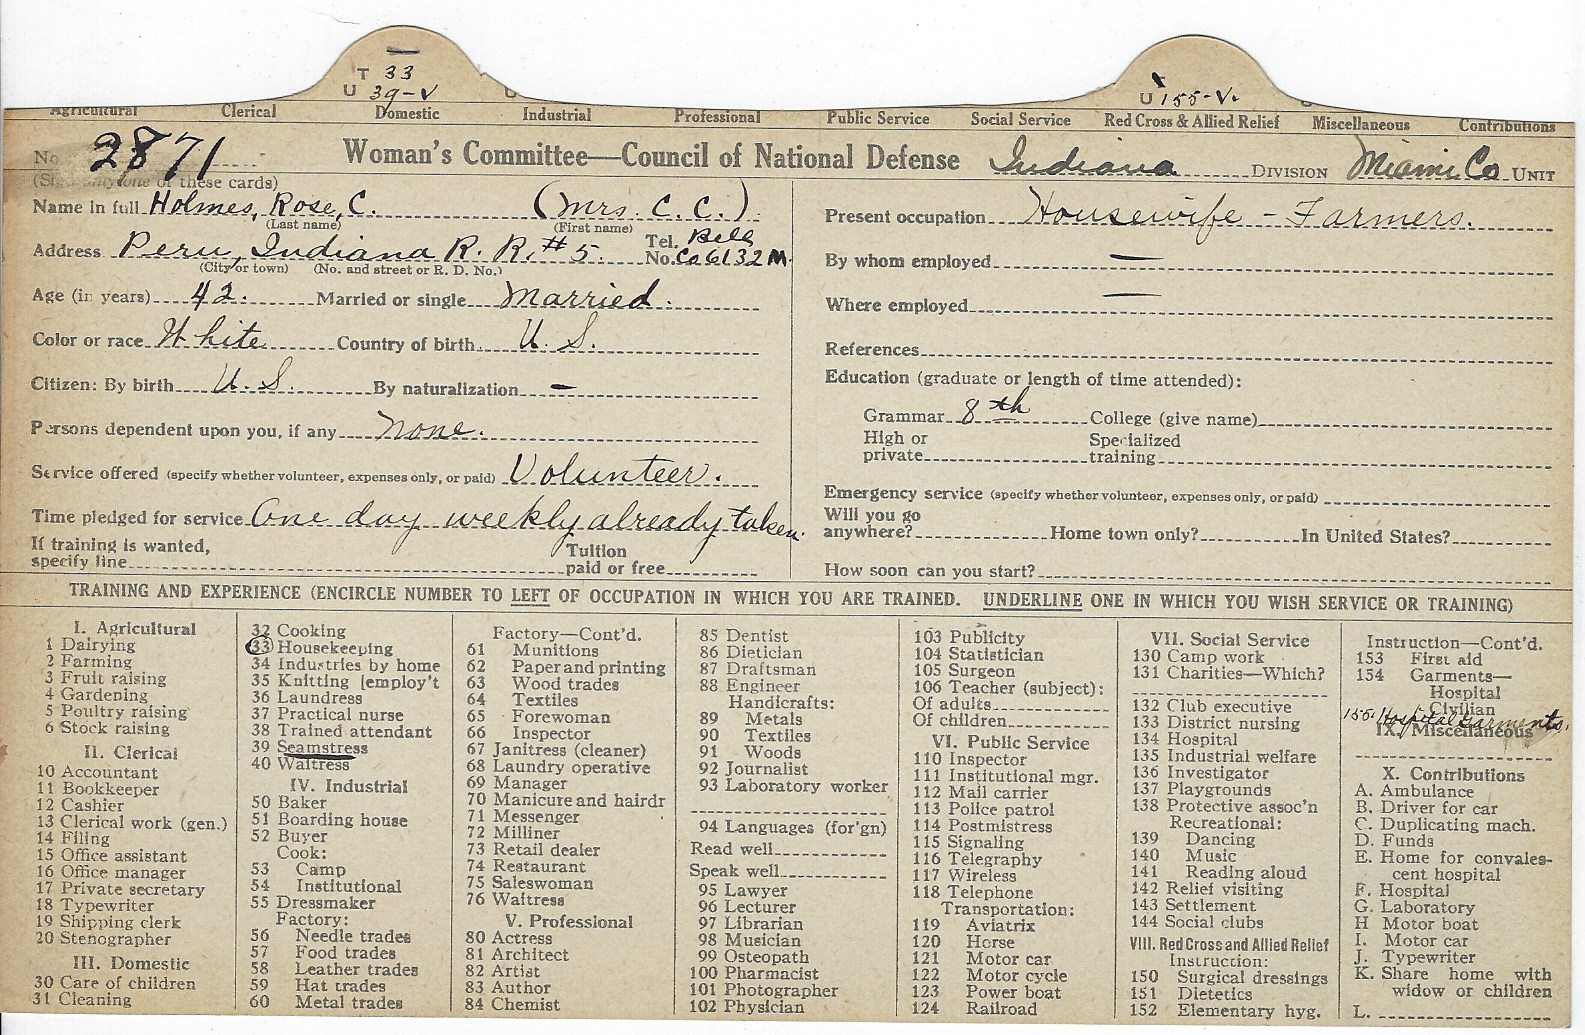 T 33
U 39-V
U 155-V.
Agricultural Clerical Domestic Industrial Professional Public Service Social Service Red Cross & Allied Relief Miscellaneous Contributions
No. 2871 Woman's Committee—Council of National Defense Indiana DIVISION Miami Co UNIT
(Sign only one of these cards)
Name in full Holmes, Rose, C. (Mrs. C. C.)
(Last name) (First name)
Address Peru, Indiana R. R. #5. Tel. No. Bell Co 6132 M.
(City or town) (No. and street or R. D. No.)
Age (in years) 42. Married or single Married.
Color or race White Country of birth U. S.
Citizen: By birth U. S. By naturalization —
Persons dependent upon you, if any none.
Service offered (specify whether volunteer, expenses only, or paid) Volunteer.
Time pledged for service One day weekly already taken.
If training is wanted,
specify line Tuition
paid or free
Present occupation Housewife - Farmers.
By whom employed —
Where employed —
References
Education (graduate or length of time attended):
Grammar 8th College (give name)
High or
private Specialized
training
Emergency service (specify whether volunteer, expenses only, or paid)
Will you go
anywhere? Home town only? In United States?
How soon can you start?
TRAINING AND EXPERIENCE (ENCIRCLE NUMBER TO LEFT OF OCCUPATION IN WHICH YOU ARE TRAINED. UNDERLINE ONE IN WHICH YOU WISH SERVICE OR TRAINING)
I. Agricultural
1 Dairying
2 Farming
3 Fruit raising
4 Gardening
5 Poultry raising
6 Stock raising
II. Clerical
10 Accountant
11 Bookkeeper
12 Cashier
13 Clerical work (gen.)
14 Filing
15 Office assistant
16 Office manager
17 Private secretary
18 Typewriter
19 Shipping clerk
20 Stenographer
III. Domestic
30 Care of children
31 Cleaning
32 Cooking
33 Housekeeping
34 Industries by home
35 Knitting [employ't
36 Laundress
37 Practical nurse
38 Trained attendant
39 Seamstress
40 Waitress
IV. Industrial
50 Baker
51 Boarding house
52 Buyer
Cook:
53 Camp
54 Institutional
55 Dressmaker
Factory:
56 Needle trades
57 Food trades
58 Leather trades
59 Hat trades
60 Metal trades
Factory—Cont'd.
61 Munitions
62 Paper and printing
63 Wood trades
64 Textiles
65 Forewoman
66 Inspector
67 Janitress (cleaner)
68 Laundry operative
69 Manager
70 Manicure and hairdr
71 Messenger
72 Milliner
73 Retail dealer
74 Restaurant
75 Saleswoman
76 Waitress
V. Professional
80 Actress
81 Architect
82 Artist
83 Author
84 Chemist
85 Dentist
86 Dietician
87 Draftsman
88 Engineer
Handicrafts:
89 Metals
90 Textiles
91 Woods
92 Journalist
93 Laboratory worker
94 Languages (for'gn)
Read well
Speak well
95 Lawyer
96 Lecturer
97 Librarian
98 Musician
99 Osteopath
100 Pharmacist
101 Photographer
102 Physician
103 Publicity
104 Statistician
105 Surgeon
106 Teacher (subject):
Of adults
Of children
VI. Public Service
110 Inspector
111 Institutional mgr.
112 Mail carrier
113 Police patrol
114 Postmistress
115 Signaling
116 Telegraphy
117 Wireless
118 Telephone
Transportation:
119 Aviatrix
120 Horse
121 Motor car
122 Motor cycle
123 Power boat
124 Railroad
VII. Social Service
130 Camp work
131 Charities—Which?
132 Club executive
133 District nursing
134 Hospital
135 Industrial welfare
136 Investigator
137 Playgrounds
138 Protective assoc'n
Recreational:
139 Dancing
140 Music
141 Reading aloud
142 Relief visiting
143 Settlement
144 Social clubs
VIII. Red Cross and Allied Relief
Instruction:
150 Surgical dressings
151 Dietetics
152 Elementary hyg.
Instruction—Cont'd.
153 First aid
154 Garments—
Hospital
Civilian
155. Hospital Garments.
IX. Miscellaneous
X. Contributions
A. Ambulance
B. Driver for car
C. Duplicating mach.
D. Funds
E. Home for convales-
cent hospital
F. Hospital
G. Laboratory
H Motor boat
I. Motor car
J. Typewriter
K. Share home with
widow or children
L.